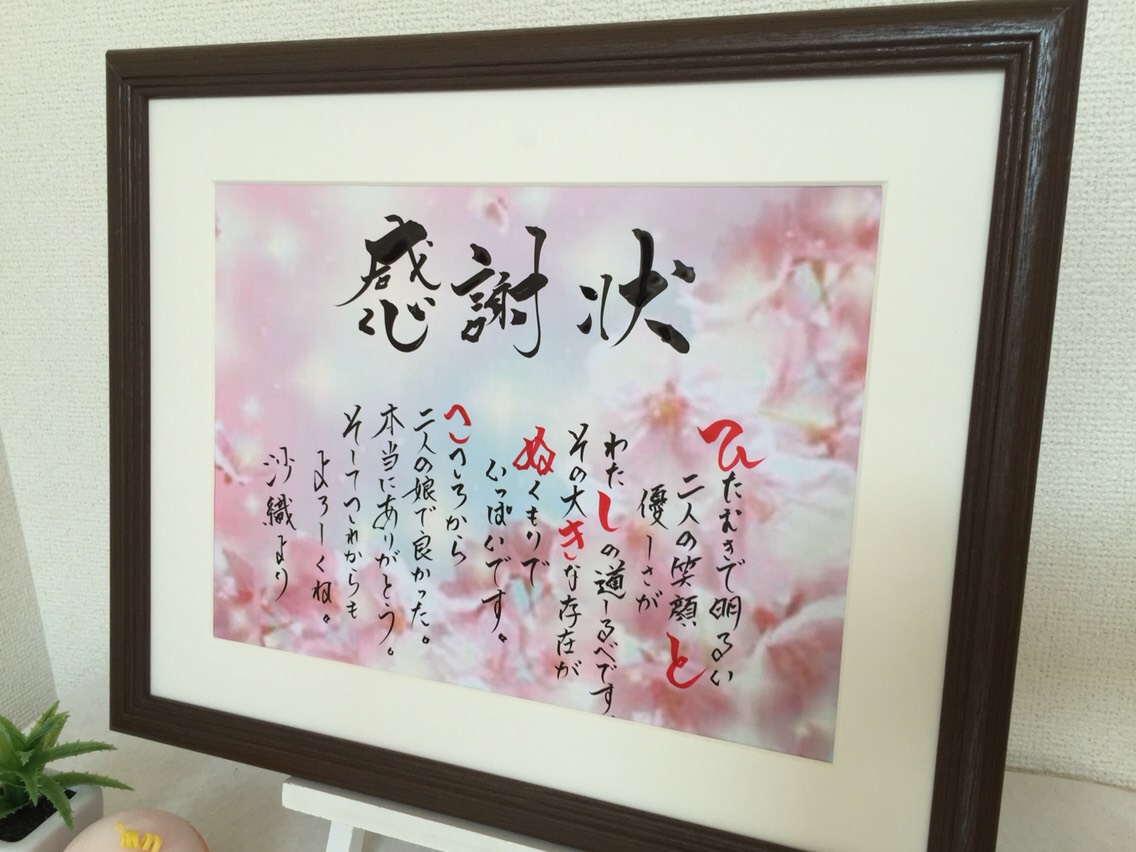 感謝状
ひたむきで明るい
二人の笑顔と
優しさが
わたしの道しるべです。
その大きな存在が
ぬくもりで
いっぱいです。
こころから
二人の娘で良かった。
本当にありがとう。
そしてこれからも
よろしくね。
沙織より